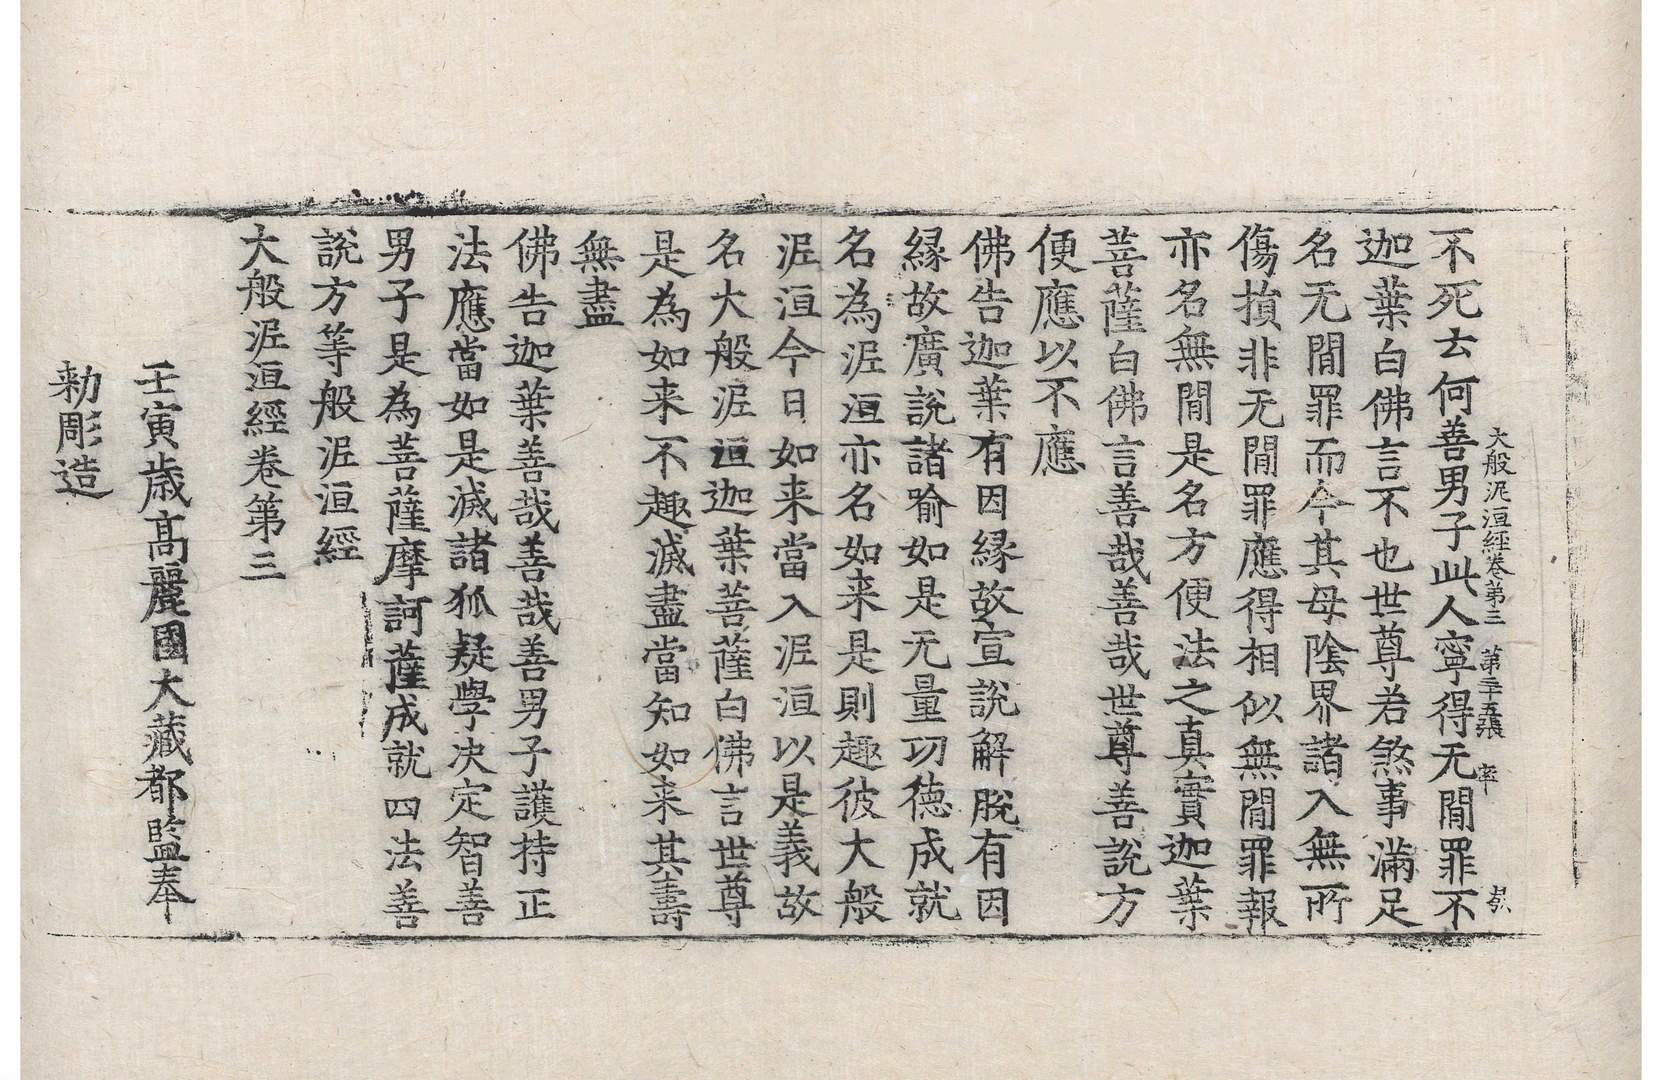 大般泥洹經卷第三 第二十五張 率
不死去何善男子此人寧得无閒罪不
迦葉白佛言不也世尊若煞事滿足
名无閒罪而今其母陰界諸入無所
傷損非无閒罪應得相似無閒罪報
亦名無閒是名方便法之真實迦葉
菩薩白佛言善哉善哉世尊善說方
便應以不應
佛告迦葉有因緣故宣說解脫有因
緣故廣說諸喻如是无量功德成就
名為泥洹亦名如来是則趣彼大般
泥洹今日如来當入泥洹以是義故
名大般泥洹迦葉菩薩白佛言世尊
是為如来不趣滅盡當知如来其壽
無盡
佛告迦葉善哉善哉善男子護持正
法應當如是滅諸狐疑學决定智善
男子是為菩薩摩訶薩成就四法善
說方等般泥洹經
大般泥洹經卷第三
壬寅歲高麗國大藏都監奉
勑彫造